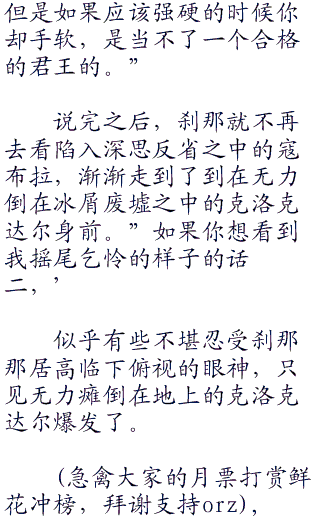 但是如果应该强硬的时候你
却手软，是当不了一个合格
的君王的。”
说完之后，刹那就不再
去看陷入深思反省之中的寇
布拉，渐渐走到了到在无力
倒在冰屑废墟之中的克洛克
达尔身前。”如果你想看到
我摇尾乞怜的样子的话
二，’
似乎有些不堪忍受刹那
那居高临下俯视的眼神，只
见无力瘫倒在地上的克洛克
达尔爆发了。
(急禽大家的月票打赏鲜
花冲榜，拜谢支持orz)，